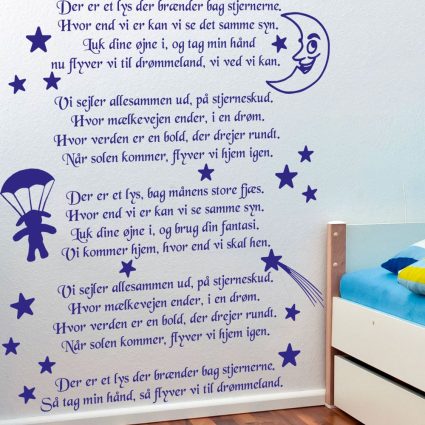 Der er et lys der brænder bag stjernerne.
Hvor end vi er kan vi se det samme syn.
Luk dine øjne i, og tag min hånd
nu flyver vi til drømmeland, vi ved vi kan.
Vi sejler allesammen ud, på stjerneskud.
Hvor mælkevejen ender, i en drøm.
Hvor verden er en bold, der drejer rundt.
Når solen kommer, flyver vi hjem igen.
Der er et lys, bag månens store fjæs.
Hvor end vi er kan vi se samme syn.
Luk dine øjne i, og brug din fantasi.
Vi kommer hjem, hvor end vi skal hen.
Vi sejler allesammen ud, på stjerneskud.
Hvor mælkevejen ender, i en drøm.
Hvor verden er en bold, der drejer rundt.
Når solen kommer, flyver vi hjem igen.
Der er et lys der brænder bag stjernerne.
Så tag min hånd, så flyver vi til drømmeland.